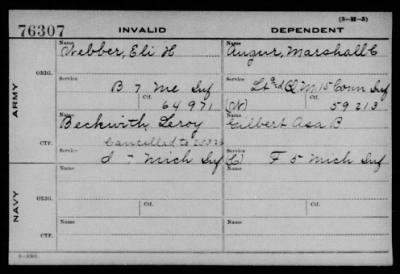 (3-H-3)
76307 INVALID DEPENDENT
Name Name
Webber, Eli H Augur, Marshall C
ARMY
ORIG.
Service Service
B 7 Me Inf Lt & Q M 15 Conn Inf
Ctf. Ctf.
64971 (W) 59213
Name Name
Beckwith, Leroy Gilbert Asa B
CTF.
Cancelled to
Service Service
I 7 Mich Inf (C) F 5 Mich Inf
NAVY
ORIG.
Name Name
Service Ctf. Service Ctf.
CTF.
Name Name
Service Service